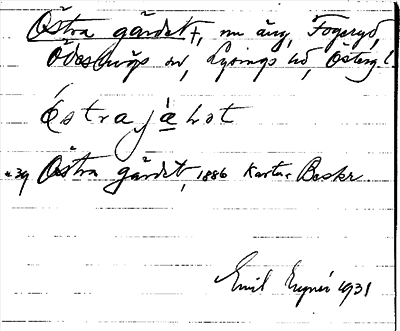 Östra gärdet†, nu äng, Fogeryd,
Ödeshögs sn, Lysings hd, Österg l.
Östra jäLat
Östra gärdet, 1886 Karta Beskr.
Emil 1931